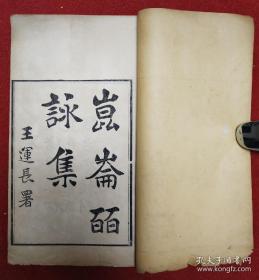 崑崙皕
詠集
王運長署
孔夫子旧书网